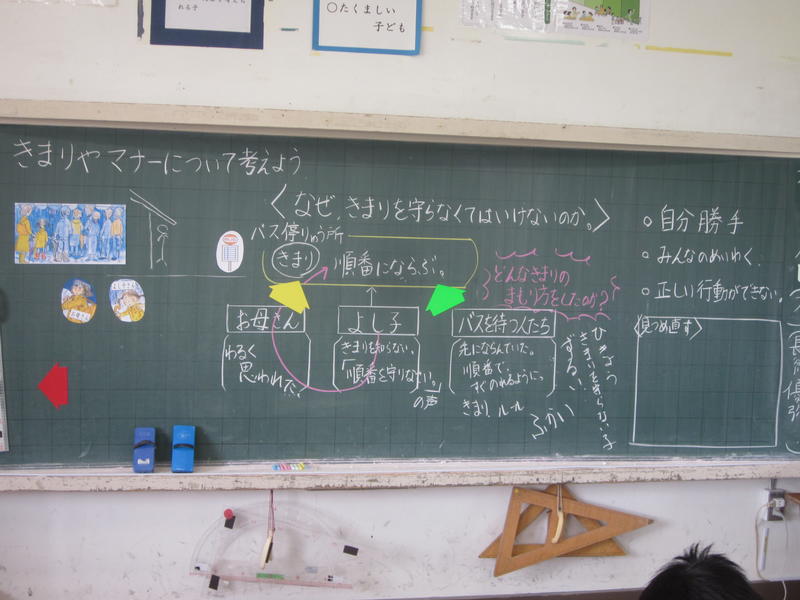 れる子
○たくましい
子ども
きまりやマナーについて考えよう
〈なぜ、きまりを守らなくてはいけないのか。〉
バス停りゅう所
きまり
順番にならぶ。
どんなきりの
まもり方をしたのか?
お母さん
わるく
思われた。
よし子
きまりを知らない。
順番を守りなさい。
の声
バスを待つ人たち
先にならんでいた。
順番で、
すぐのれるように。
きまり ルール
ひきょう
きまりを守らない子
ずるい
ふかい
○自分勝手
○みんなのめいわく
○正しい行動ができない。
〈見つめ直す〉
よし子さん
お母さん